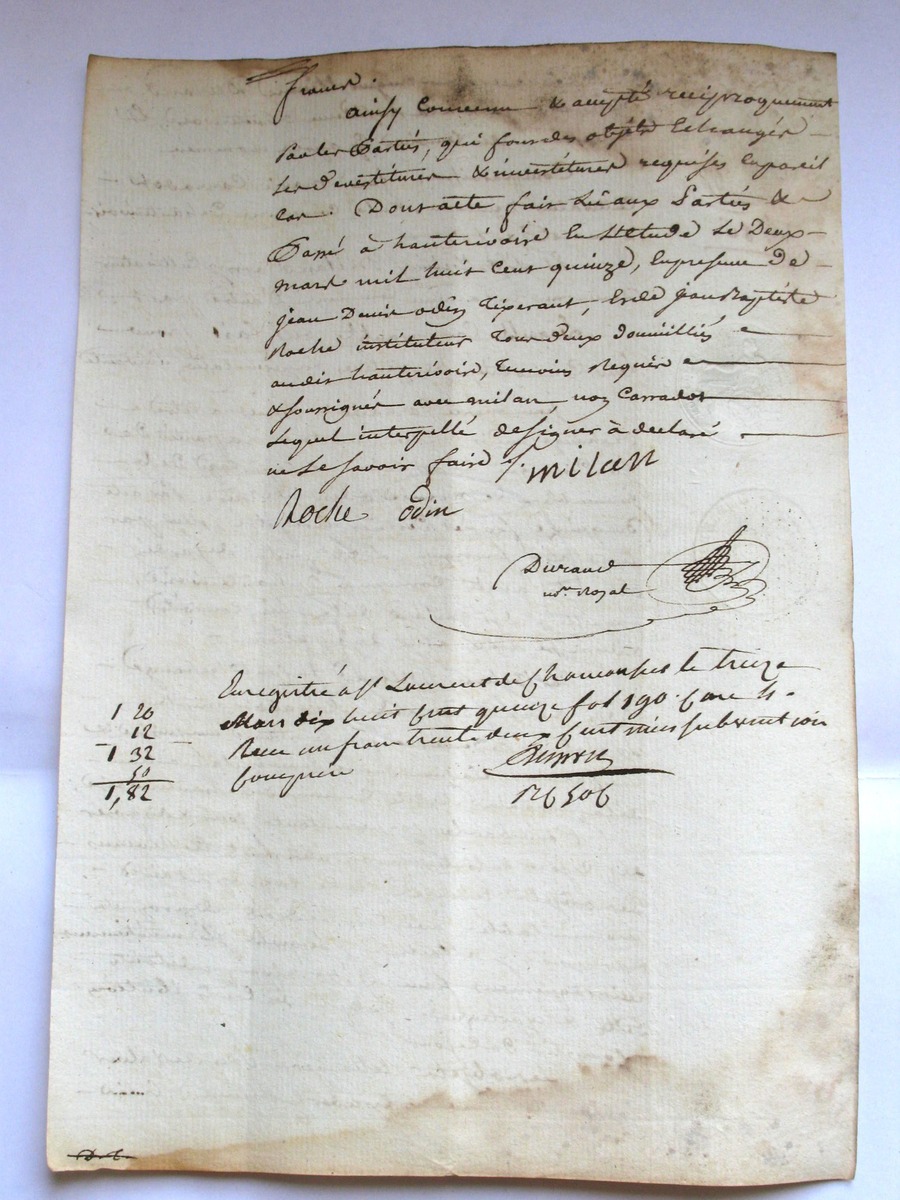 francs.
ainsy convenu & accepté reciproquement
par les Parties, qui font des objets Echangés
les devestitures & investitures requises En pareil
cas. Dont acte fait Lû aux Parties &
Passé à hauterivoire En l'Etude Le Deux
mars mil huit cent quinze, En presence De
jean Denis odin Tixerant, & de jean Baptiste
Roche instituteur Tous deux domicilliés
audit hauterivoire, Temoins Requis
& soussignés avec milan non Carrados
Lequel interpellé de signer à declaré
ne Le savoir faire /. milan
Roche odin
Durand
nore Royal
Enregistré a St Laurent de Chamousset le treize
Mars dix huit cent quinze fol 190. Case
Recu un franc trente deux Centimes subvention
comprise
1 20
12
1 32
50
1,82